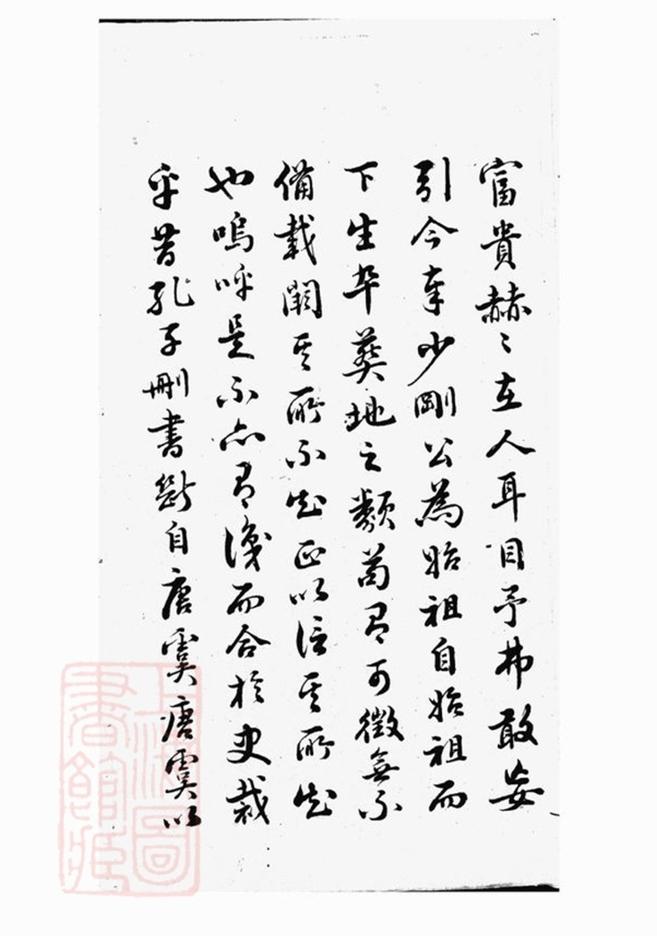 富貴赫〻在人耳目予弗敢妄
引今奉少剛公為始祖自始祖而
下生卒葬地之類苟有可徵無不
備載闕其所不知正以信其所知
也嗚呼是不亦有識而合於史裁
乎昔孔子刪書斷自唐虞唐虞以
上海圖
書館藏